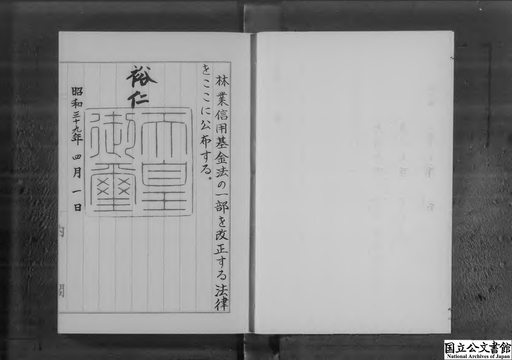 林業信用基金法の一部を改正する法律
をここに公布する。
裕仁
天皇
御璽
昭和三十九年四月一日
内閣
国立公文書館
National Archives of Japan